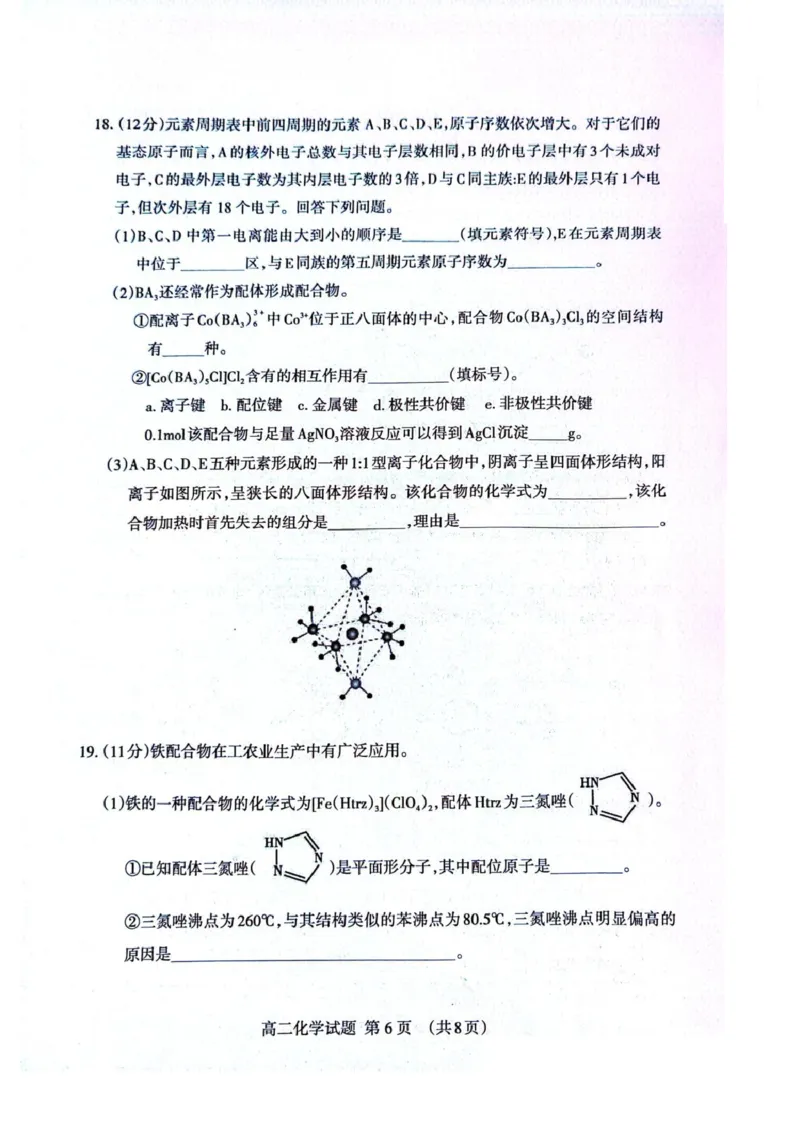 18.(12分)元素周期表中前四周期的元素 A、B、C、D、E,原子序数依次增大。对于它们的
基态原子而言,A的核外电子总数与其电子层数相同,B的价电子层中有3个未成对
电子,C的最外层电子数为其内层电子数的3倍,D与C同主族:E的最外层只有1个电
子,但次外层有 18 个电子。回答下列问题。
(1)B、C、D 中第一电离能由大到小的顺序是________(填元素符号),E在元素周期表
中位于________区,与E同族的第五周期元素原子序数为____________。
(2)BA₃还经常作为配体形成配合物。
①配离子Co(BA₃)₆³⁺中Co³⁺位于正八面体的中心,配合物Co(BA₃)₃Cl₃的空间结构
有_____种。
②[Co(BA₃)₅Cl]Cl₂含有的相互作用有__________(填标号)。
a.离子键 b.配位键 c.金属键 d.极性共价键 e.非极性共价键
0.1mol该配合物与足量AgNO₃溶液反应可以得到AgCl沉淀_____g。
(3)A、B、C、D、E五种元素形成的一种1:1型离子化合物中,阴离子呈四面体形结构,阳
离子如图所示,呈狭长的八面体形结构。该化合物的化学式为__________,该化
合物加热时首先失去的组分是__________,理由是__________________________。
19.(11分)铁配合物在工农业生产中有广泛应用。
(1)铁的一种配合物的化学式为[Fe(Htrz)₃](ClO₄)₂,配体Htrz为三氮唑( HN N N )。
①已知配体三氮唑( HN N N )是平面形分子,其中配位原子是_________。
②三氮唑沸点为260℃,与其结构类似的苯沸点为80.5℃,三氮唑沸点明显偏高的
原因是____________________________________。
高二化学试题 第6页 (共8页)